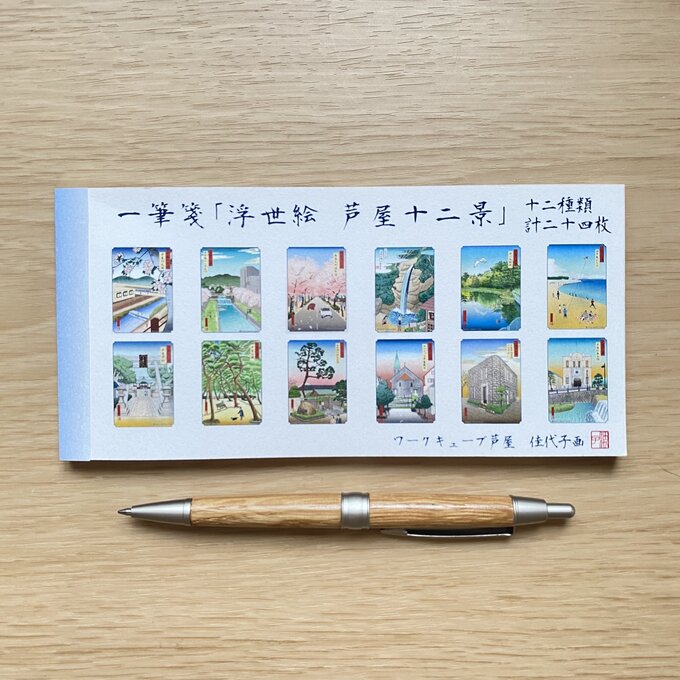 一筆箋「浮世絵 芦屋十二景」
十二種類
計二十四枚
ワークキューブ芦屋 佳代子画